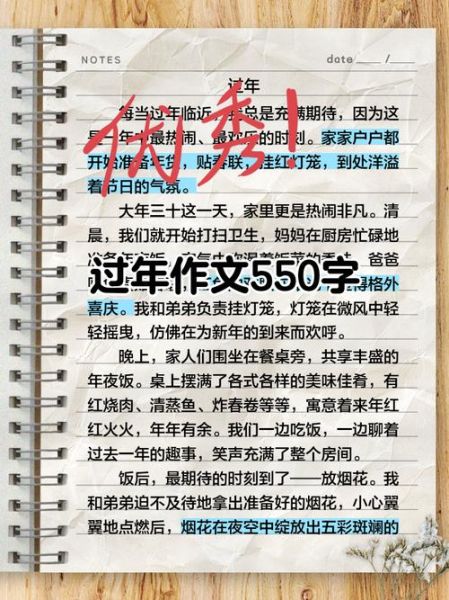 NOTES
date ___ /___
过年
每当过年临近,我总是充满期待,因为这
是一年中最热闹、最欢乐的时刻。家家户户都
开始准备年货,贴春联,挂红灯笼,到处洋溢
着节日的气氛。
优秀!
大年三十这一天,家里更是热闹非凡。清
晨,我们就开始打扫卫生,妈妈在厨房忙碌地
爸爸
过年作文550字
得格外
喜庆。我和弟弟负责挂灯笼,灯笼在微风中轻
轻摇曳,仿佛在为新年的到来而欢呼。
晚上,家人们围坐在餐桌旁,共享丰盛的
年夜饭。桌上摆满了各式各样的美味佳肴,有
红烧肉、清蒸鱼、炸春卷等等,寓意着来年红
红火火,年年有余。我们一边吃饭,一边聊着
过去一年的趣事,笑声充满了整个房间。
饭后,最期待的时刻到了——放烟花。我
和弟弟迫不及待地拿出准备好的烟花,小心翼
翼地点燃后,烟花在夜空中绽放出五彩斑斓的